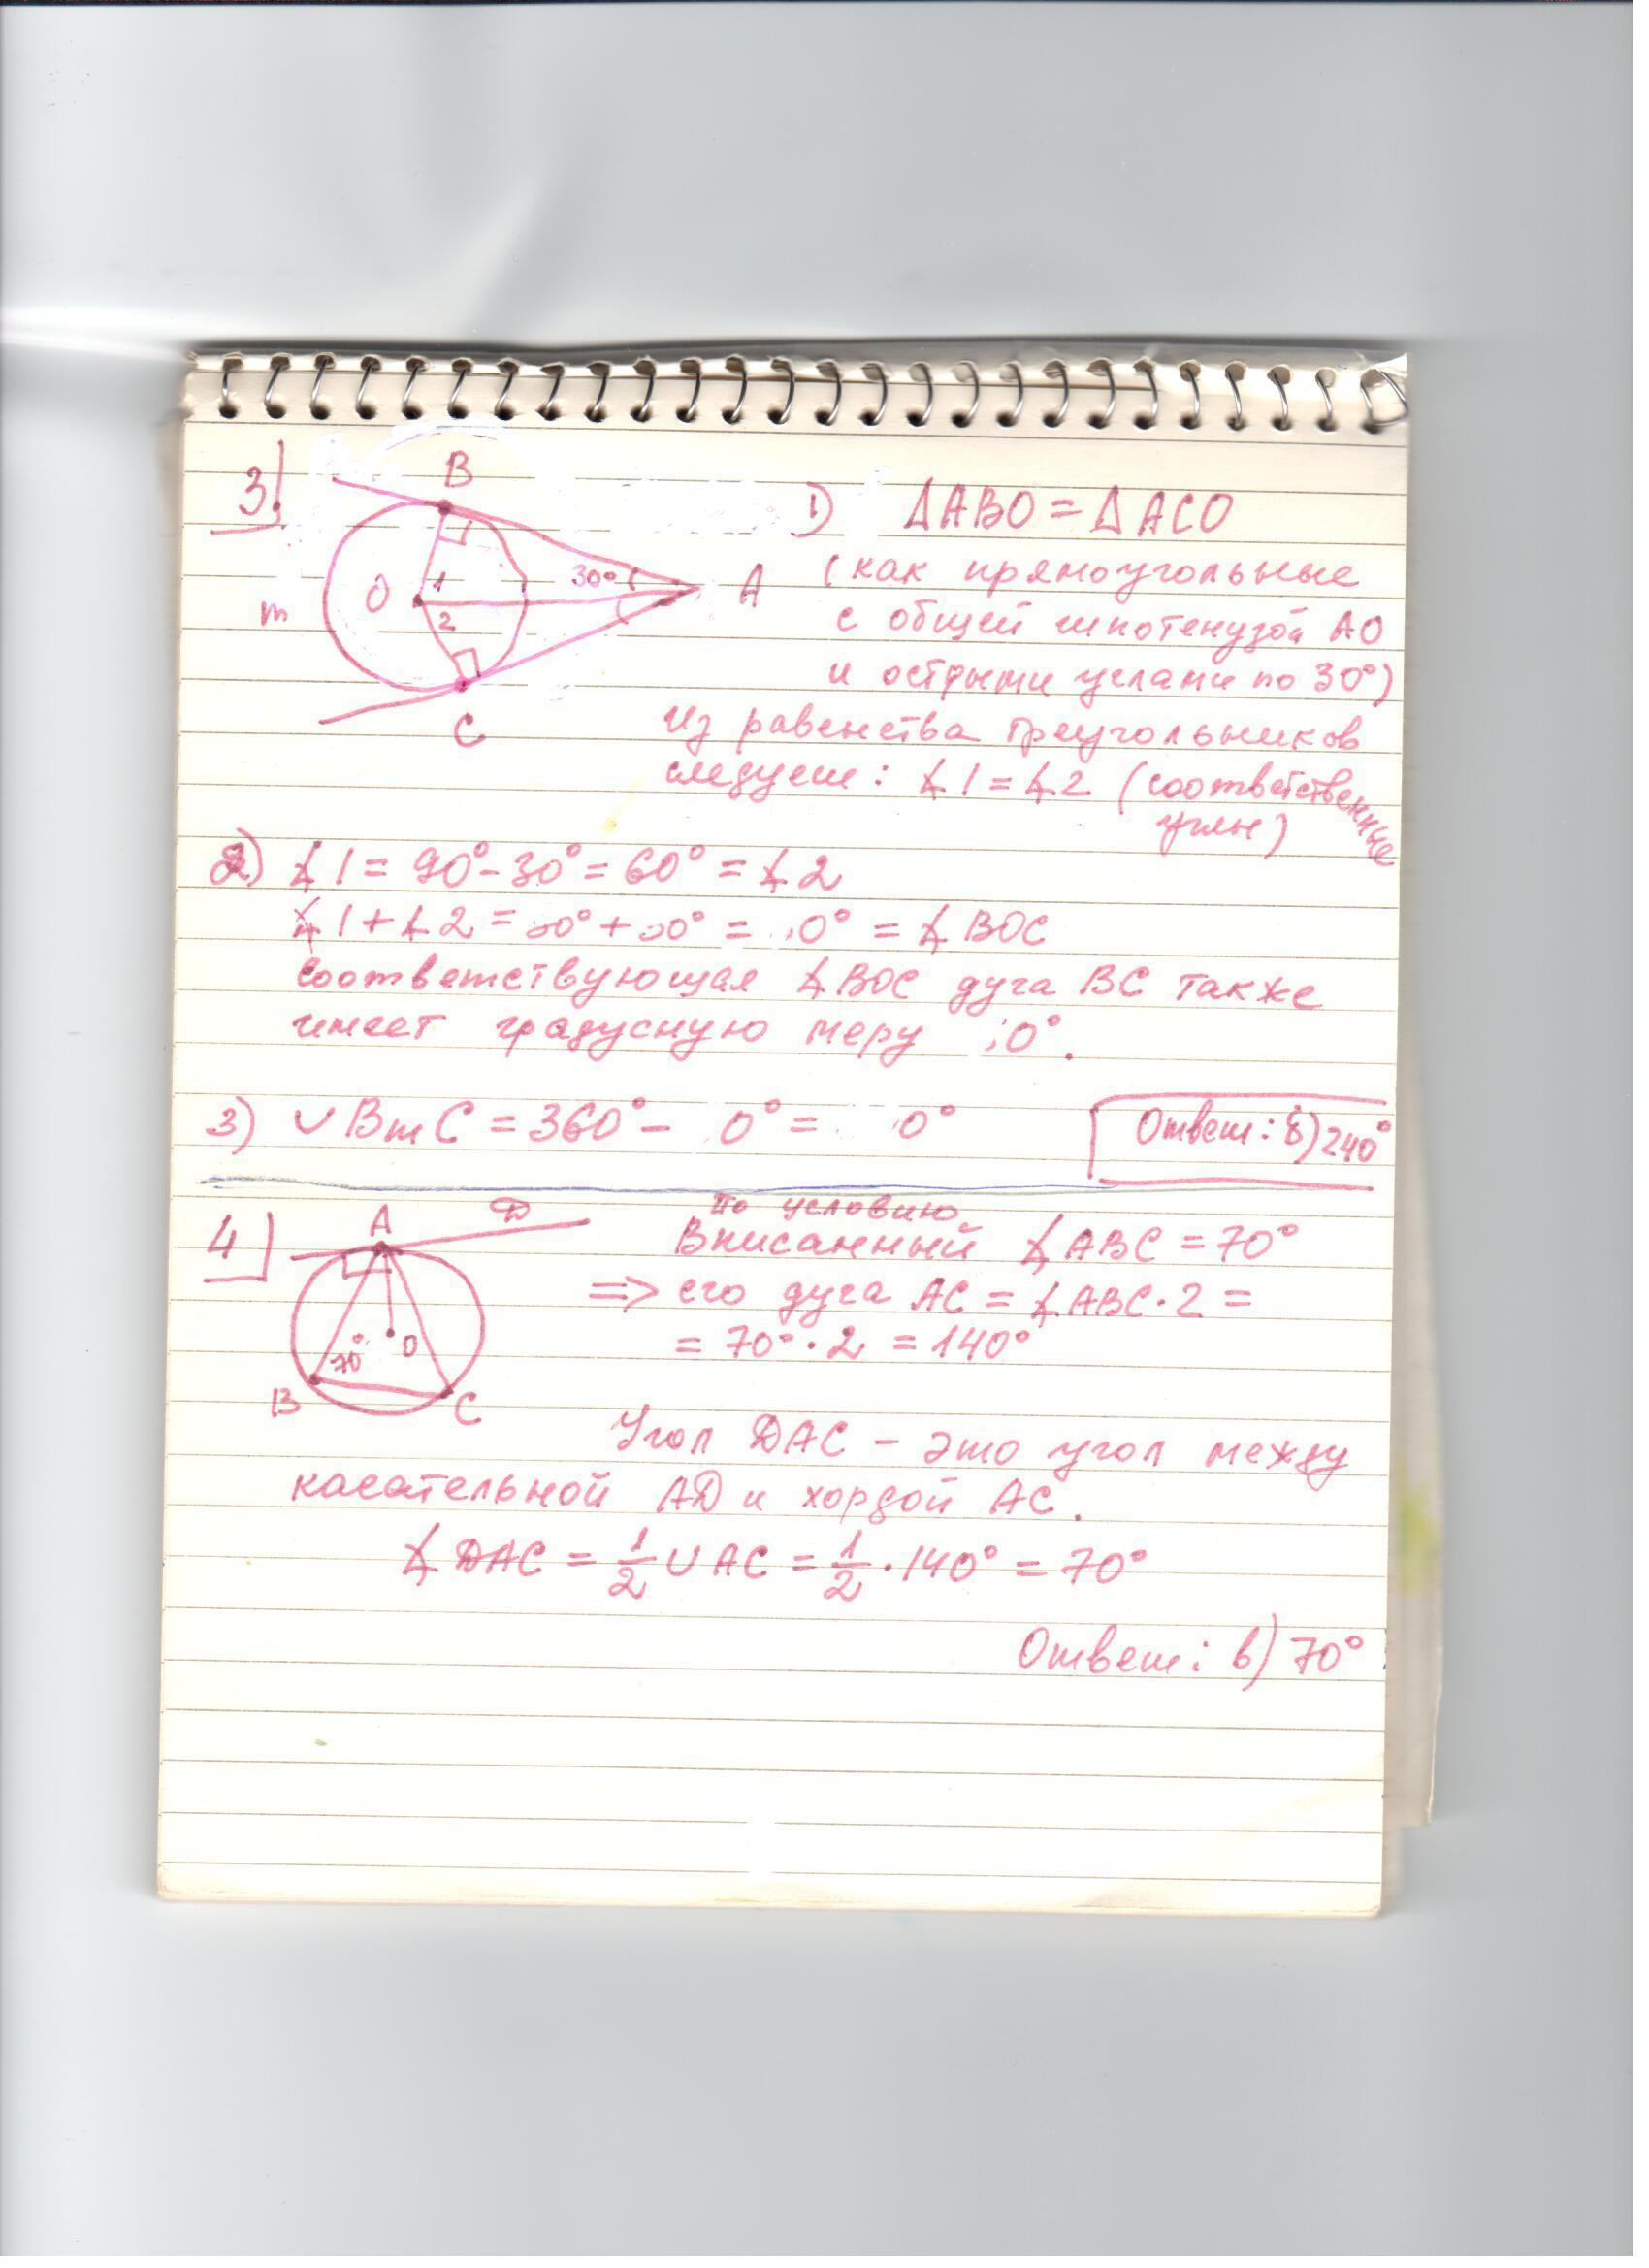 3)
B
O
1
2
30°
A
m
C
1) ΔABO = ΔACO
(как прямоугольные
с общей гипотенузой AO
и острыми углами по 30°)
Из равенства треугольников
следует: ∡1 = ∡2 (соответственные
углы)
2) ∡1 = 90° - 30° = 60° = ∡2
∡1 + ∡2 = 0° + 0° = 0° = ∡BOC
Соответствующая ∡BOC дуга BC также
имеет градусную меру 0°.
3) ∪BmC = 360° - 0° = 0°
Ответ: 240°
4)
A
D
70°
O
B
C
По условию
Вписанный ∡ABC = 70°
=> его дуга AC = ∡ABC · 2 =
= 70° · 2 = 140°
Угол DAC – это угол между
касательной AD и хордой AC.
∡DAC = 1/2 ∪AC = 1/2 · 140° = 70°
Ответ: в) 70°